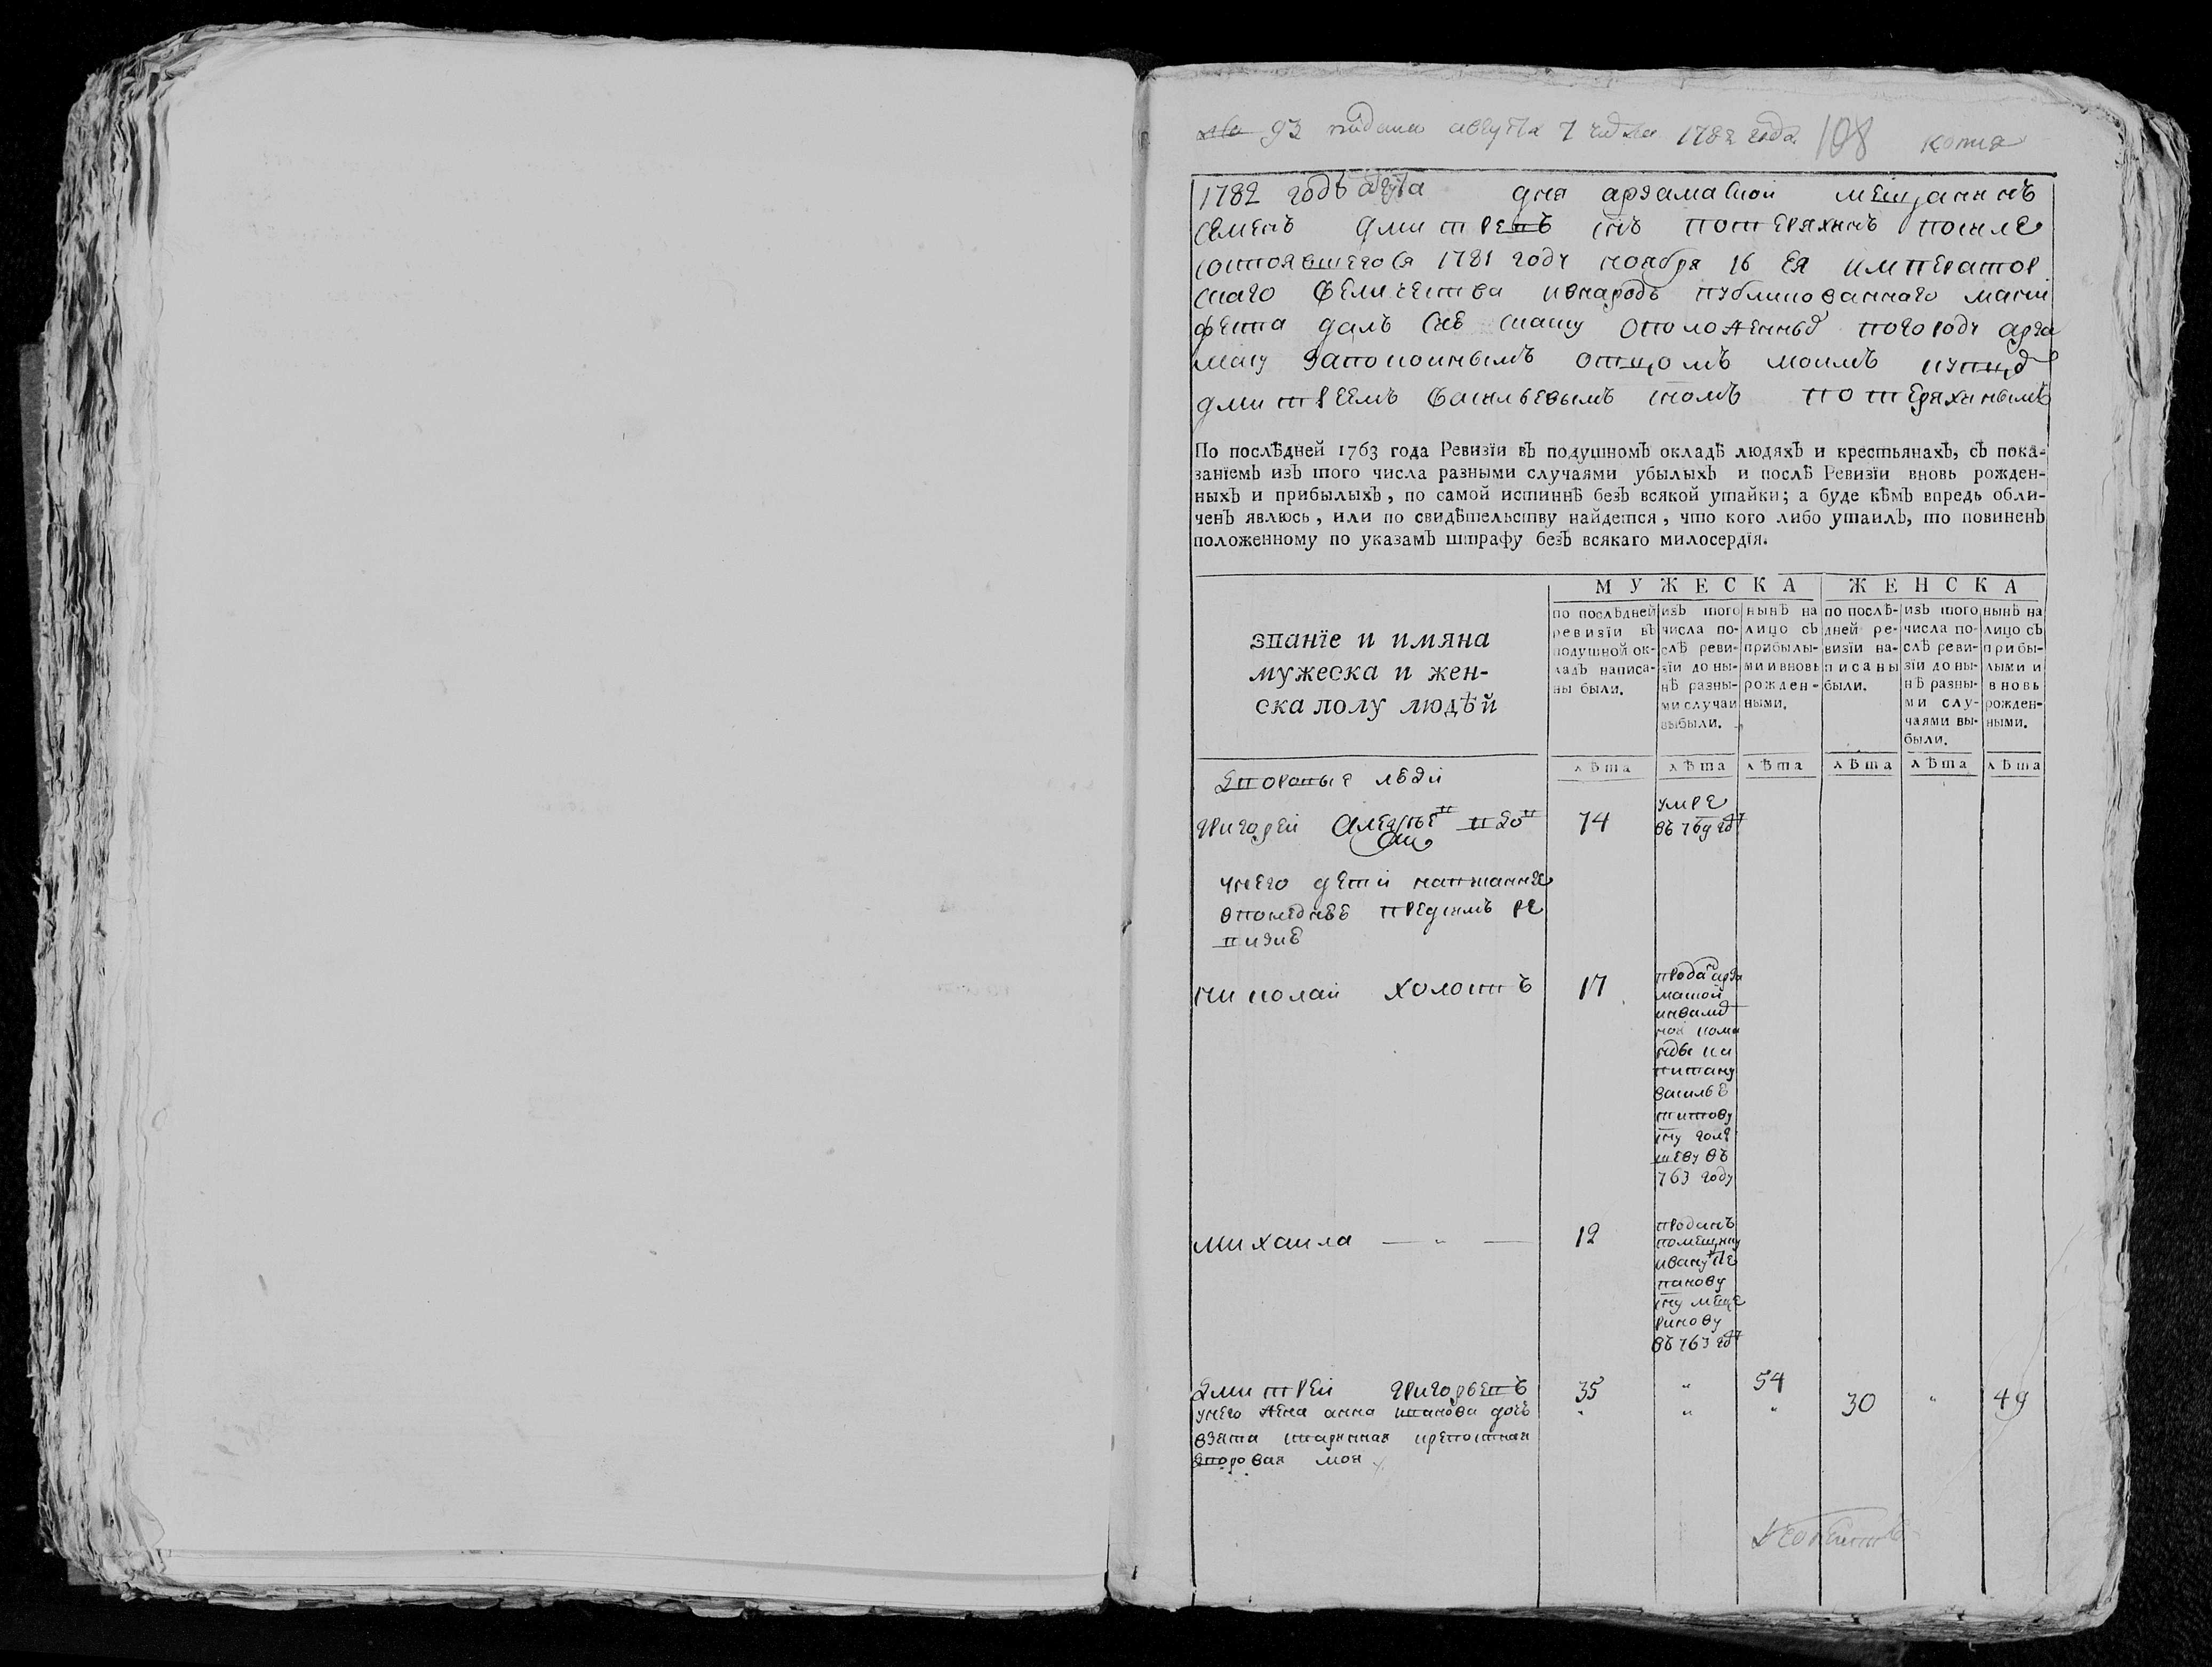 № 93 подана августа 7 числа 1782 года 108 копия
1782 годъ августа дня арзамаской мещанинъ
семенъ дмитревъ снъ потеряхинъ посиле
состоявшегося 1781 году ноября 16 ея император
скаго величества ивнародъ публикованнаго мани
феста далъ сие скаску оположенныхъ погороду арза
масу запокоинымъ отцомъ моимъ купцо
дмитреемъ васильевымъ сномъ потеряхинымъ
По послѣдней 1763 года Ревизїи въ подушномъ окладѣ людяхъ и крестьянахъ, съ пока-
занїемъ изъ того числа разными случаями убылыхъ и послѣ Ревизїи вновь рожден-
ныхъ и прибылыхъ, по самой истиннѣ безъ всякой утайки; а буде кѣмъ впредь обли-
ченъ явлюсь, или по свидѣтельству найдется, что кого либо утаилъ, то повиненъ
положенному по указамъ штрафу безъ всякаго милосердїя.
МУЖЕСКА ЖЕНСКА
званїе и имяна
мужеска и жен-
ска полу людѣй
по послѣдней
ревизїи въ
подушной ок-
ладъ написа-
ны были.
изъ того
числа по-
слѣ реви-
зїи до ны-
нѣ разны-
ми случаи
выбыли.
нынѣ на
лицо съ
прибылы-
ми и вновь
рожден-
ными.
по послѣ-
дней ре-
визїи на-
писаны
были.
изъ того
числа по-
слѣ реви-
зїи до ны-
нѣ разны-
ми слу-
чаями вы-
были.
нынѣ на
лицо съ
прибы-
лыми и
вновь
рожден-
ными.
лѣта лѣта лѣта лѣта лѣта лѣта
Дворовые люди
григорей алексеевъ вдовъ 74
умре
въ 769 году
унего дети написанныя
впоследнее предсимъ ре
визие
николай холостъ 17
проданъ арза
маской
инвалид
ной кома
нды ка
питану
василью
титову
сну голе
шеву въ
763 году
михаила — „ — 12
проданъ
помещику
ивану сте
панову
сну меще
ринову
въ 763 году
Дмитреи григорьевъ 35 „ 54
унего жена анна иванова дочь „ „ „ 30 „ 49
взята старинная крепостная
дворовая моя